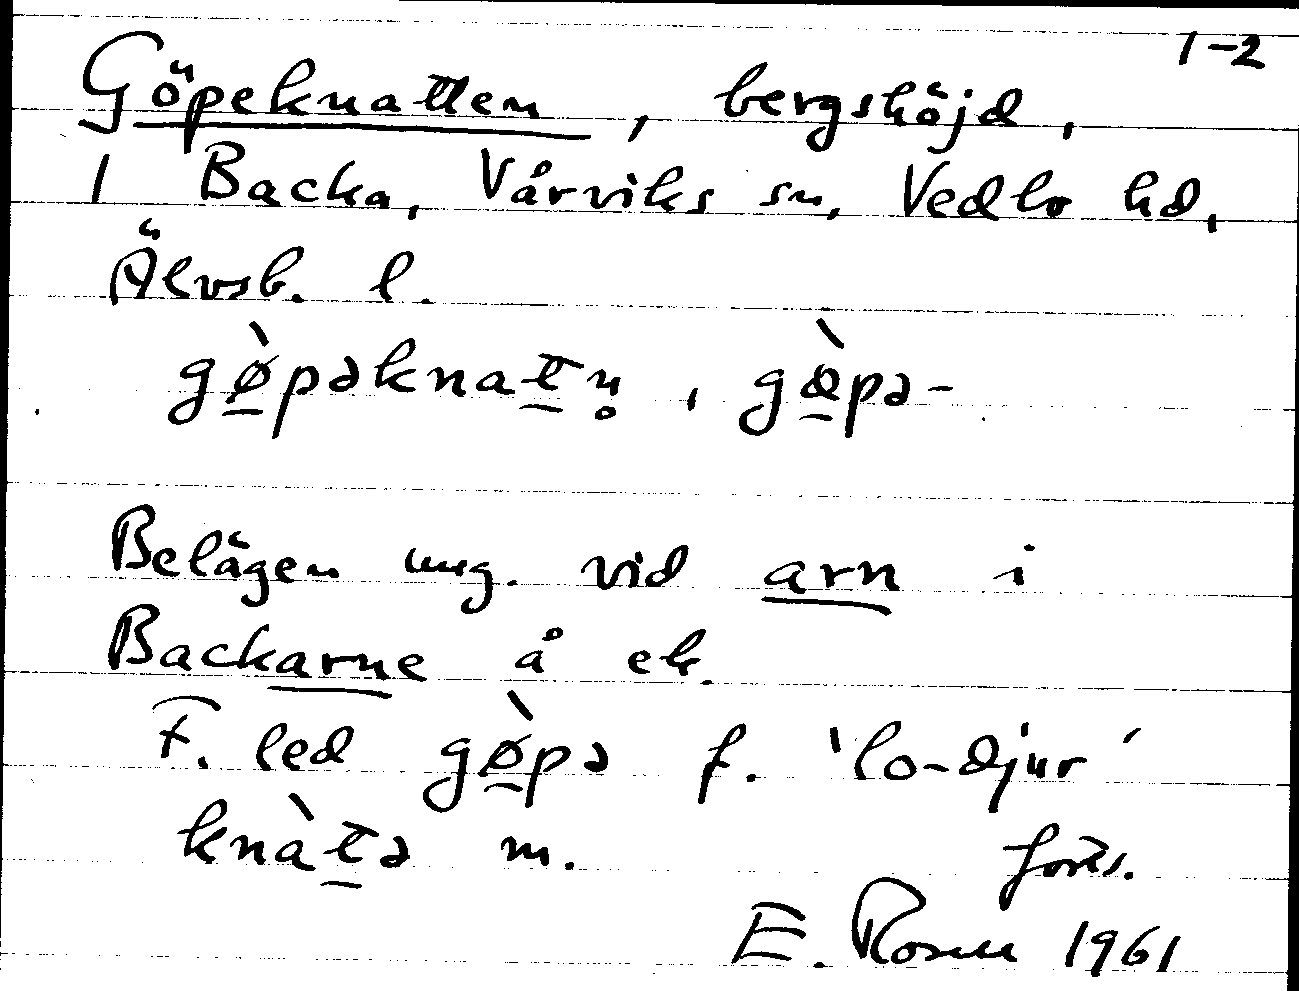 1-2
Göpeknatten, bergshöjd,
1 Backa, Vårviks sn, Vedbo hd,
Älvsb. l.
gø̀pəknatn̥, gæ̀pə-
Belägen ung. vid arn i
Backarne å ek.
F. led gø̀pə f. 'lo-djur'
knàtə m.
forts.
E. Rosén 1961